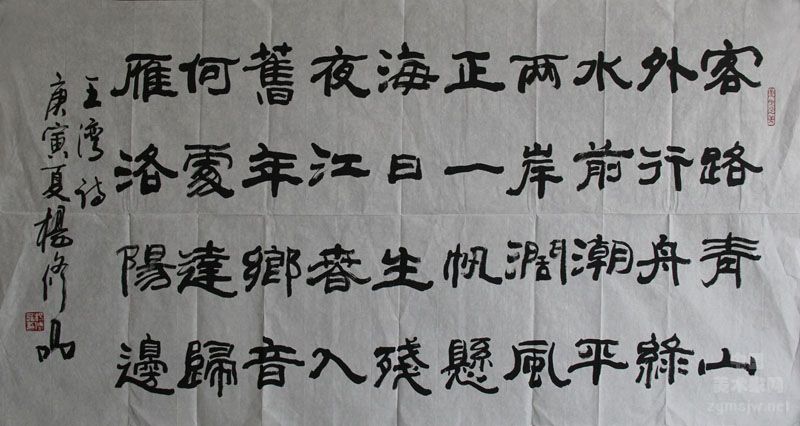 客路青山
外行舟綠
水前潮平
兩岸闊風
正一帆懸
海日生殘
夜江春入
舊年鄉音
何處達歸
雁洛陽邊
王湾诗
庚寅夏楊修
美术家网
zgmsjw.net